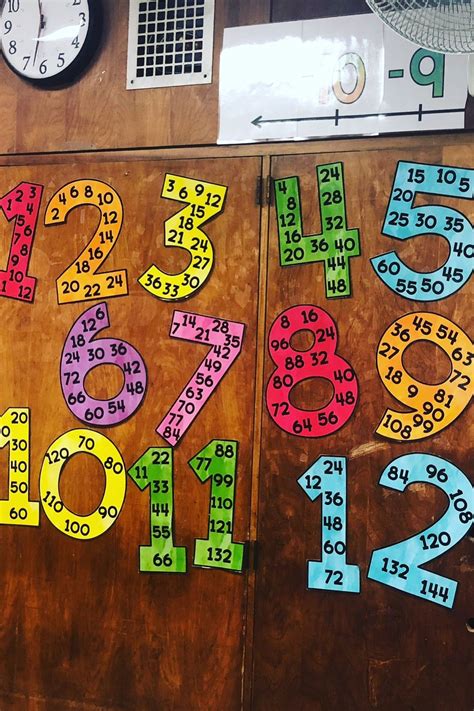 -10 -9
1 2 3
4
5
2 4 6 8 10
12
14
16
18
20 22 24
3 6 9 12
15
18
21 24
27
30
33 36
4 24
8 28
12 32
16 20 36 40
44
48
15 10 5
20
25 30 35
40
45
50
55
60
6
12
18
24 30 36
72 42
66 48
60 54
7 14 28
21 35
42
49
56
63
70
77
84
8 16 24
96 32
88 40
80 48
72 56
64
36 45 54
27 63
18 72
9 81
90
99
108
10
20
30
40
50
60
70 80
120 90
110 100
11
22
33
44
55
66
77 88
99
110
121
132
12 24
36
48
60
72
84 96
108
120
132 144